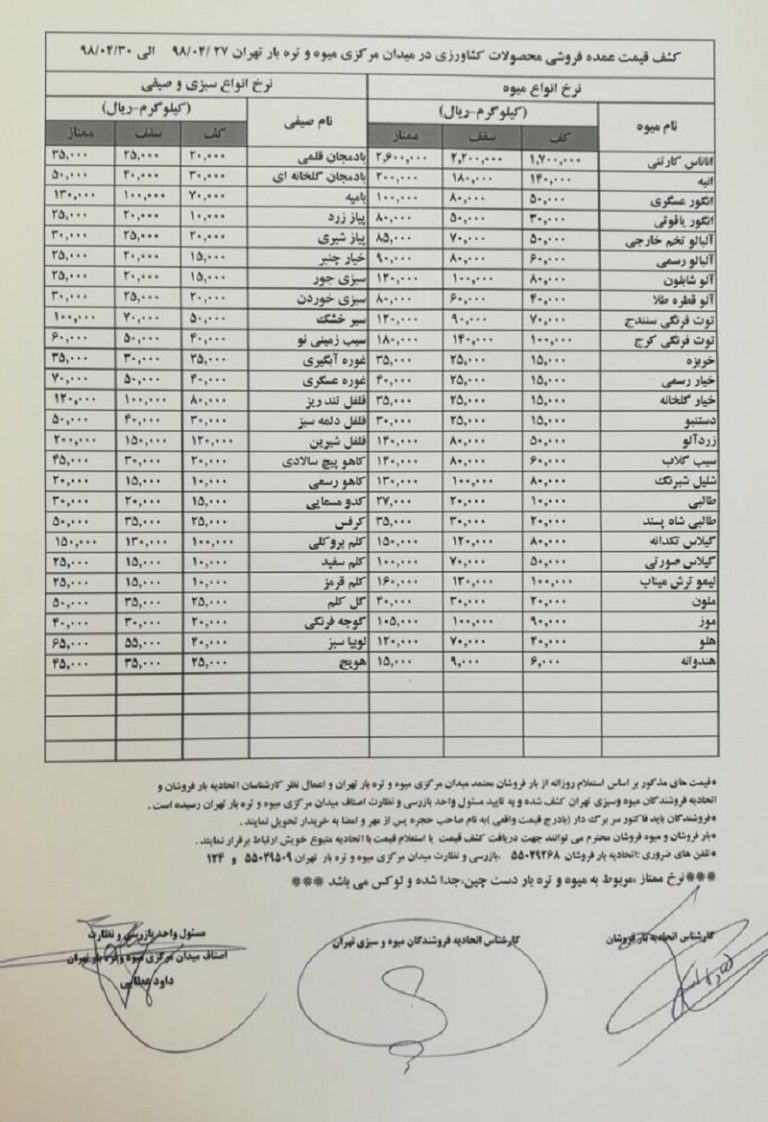 کشف قیمت عمده فروشی محصولات کشاورزی در میدان مرکزی میوه و تره بار تهران ۹۸/۰۴/۲۷ الی ۹۸/۰۴/۳۰
نرخ انواع میوه نرخ انواع سبزی و صیفی
نام میوه (کیلوگرم-ریال) نام صیفی (کیلوگرم-ریال)
کف سقف ممتاز کف سقف ممتاز
آناناس کارتنی ۱,۷۰۰,۰۰۰ ۲,۲۰۰,۰۰۰ ۲,۶۰۰,۰۰۰ بادمجان قلمی ۲۰,۰۰۰ ۲۵,۰۰۰ ۳۵,۰۰۰
انبه ۱۴۰,۰۰۰ ۱۸۰,۰۰۰ ۲۰۰,۰۰۰ بادمجان گلخانه ای ۳۰,۰۰۰ ۴۰,۰۰۰ ۵۰,۰۰۰
انگور عسگری ۵۰,۰۰۰ ۸۰,۰۰۰ ۱۰۰,۰۰۰ بامیه ۷۰,۰۰۰ ۱۰۰,۰۰۰ ۱۳۰,۰۰۰
انگور یاقوتی ۳۰,۰۰۰ ۵۰,۰۰۰ ۸۰,۰۰۰ پیاز زرد ۱۰,۰۰۰ ۲۰,۰۰۰ ۲۵,۰۰۰
آلبالو تخم خارجی ۵۰,۰۰۰ ۷۰,۰۰۰ ۸۵,۰۰۰ پیاز شیری ۲۰,۰۰۰ ۲۵,۰۰۰ ۳۰,۰۰۰
آلبالو رسمی ۶۰,۰۰۰ ۸۰,۰۰۰ ۹۰,۰۰۰ خیار چنبر ۱۵,۰۰۰ ۲۰,۰۰۰ ۲۵,۰۰۰
آلو شابلون ۸۰,۰۰۰ ۱۰۰,۰۰۰ ۱۲۰,۰۰۰ سبزی جور ۱۵,۰۰۰ ۲۰,۰۰۰ ۲۵,۰۰۰
آلو قطره طلا ۴۰,۰۰۰ ۶۰,۰۰۰ ۸۰,۰۰۰ سبزی خوردن ۲۰,۰۰۰ ۲۵,۰۰۰ ۳۰,۰۰۰
توت فرنگی سنندج ۷۰,۰۰۰ ۹۰,۰۰۰ ۱۲۰,۰۰۰ سیر خشک ۵۰,۰۰۰ ۷۰,۰۰۰ ۱۰۰,۰۰۰
توت فرنگی کرج ۱۰۰,۰۰۰ ۱۴۰,۰۰۰ ۱۸۰,۰۰۰ سیب زمینی نو ۴۰,۰۰۰ ۵۰,۰۰۰ ۶۰,۰۰۰
خربزه ۱۵,۰۰۰ ۲۵,۰۰۰ ۳۵,۰۰۰ غوره آبگیری ۲۵,۰۰۰ ۳۰,۰۰۰ ۳۵,۰۰۰
خیار رسمی ۱۵,۰۰۰ ۲۵,۰۰۰ ۴۰,۰۰۰ غوره عسگری ۴۰,۰۰۰ ۵۰,۰۰۰ ۷۰,۰۰۰
خیار گلخانه ۱۵,۰۰۰ ۲۵,۰۰۰ ۳۵,۰۰۰ فلفل تند ریز ۸۰,۰۰۰ ۱۰۰,۰۰۰ ۱۲۰,۰۰۰
دستنبو ۱۵,۰۰۰ ۲۵,۰۰۰ ۳۰,۰۰۰ فلفل دلمه سبز ۳۰,۰۰۰ ۴۰,۰۰۰ ۵۰,۰۰۰
زردآلو ۵۰,۰۰۰ ۸۰,۰۰۰ ۱۴۰,۰۰۰ فلفل شیرین ۱۲۰,۰۰۰ ۱۵۰,۰۰۰ ۲۰۰,۰۰۰
سیب گلاب ۶۰,۰۰۰ ۸۰,۰۰۰ ۱۴۰,۰۰۰ کاهو پیچ سالادی ۲۰,۰۰۰ ۳۰,۰۰۰ ۴۵,۰۰۰
شلیل شبرنگ ۸۰,۰۰۰ ۱۰۰,۰۰۰ ۱۳۰,۰۰۰ کاهو رسمی ۱۰,۰۰۰ ۱۵,۰۰۰ ۲۰,۰۰۰
طالبی ۱۰,۰۰۰ ۲۰,۰۰۰ ۲۷,۰۰۰ کدو مسمایی ۱۵,۰۰۰ ۲۰,۰۰۰ ۳۰,۰۰۰
طالبی شاه پسند ۲۰,۰۰۰ ۳۰,۰۰۰ ۳۵,۰۰۰ کرفس ۲۵,۰۰۰ ۳۵,۰۰۰ ۵۰,۰۰۰
گیلاس تکدانه ۸۰,۰۰۰ ۱۲۰,۰۰۰ ۱۵۰,۰۰۰ کلم بروکلی ۱۰۰,۰۰۰ ۱۳۰,۰۰۰ ۱۵۰,۰۰۰
گیلاس صورتی ۵۰,۰۰۰ ۷۰,۰۰۰ ۱۰۰,۰۰۰ کلم سفید ۱۰,۰۰۰ ۱۵,۰۰۰ ۲۵,۰۰۰
لیمو ترش میناب ۱۰۰,۰۰۰ ۱۳۰,۰۰۰ ۱۶۰,۰۰۰ کلم قرمز ۱۰,۰۰۰ ۱۵,۰۰۰ ۲۵,۰۰۰
ملون ۲۰,۰۰۰ ۳۰,۰۰۰ ۴۰,۰۰۰ گل کلم ۲۵,۰۰۰ ۳۵,۰۰۰ ۵۰,۰۰۰
موز ۹۰,۰۰۰ ۱۰۰,۰۰۰ ۱۰۵,۰۰۰ گوجه فرنگی ۲۰,۰۰۰ ۳۰,۰۰۰ ۴۰,۰۰۰
هلو ۴۰,۰۰۰ ۷۰,۰۰۰ ۱۲۰,۰۰۰ لوبیا سبز ۴۰,۰۰۰ ۵۵,۰۰۰ ۶۵,۰۰۰
هندوانه ۶,۰۰۰ ۹,۰۰۰ ۱۵,۰۰۰ هویج ۲۵,۰۰۰ ۳۵,۰۰۰ ۴۵,۰۰۰
*قیمت های مذکور بر اساس استعلام روزانه از بار فروشان معتمد میدان مرکزی میوه و تره بار تهران و اعمال نظر کارشناسان اتحادیه بار فروشان و
اتحادیه فروشندگان میوه وسبزی تهران کشف شده و به تایید مسئول واحد بازرسی و نظارت اصناف میدان مرکزی میوه و تره بار تهران رسیده است .
*فروشندگان باید فاکتور سر برگ دار (بادرج قیمت واقعی )به نام صاحب حجره پس از مهر و امضا به خریدار تحویل نمایند .
*بار فروشان و میوه فروشان محترم می توانند جهت دریافت کشف قیمت یا استعلام قیمت با اتحادیه متبوع خویش ارتباط برقرار نمایند .
*تلفن های ضروری :اتحادیه بار فروشان ۵۵۰۲۹۲۶۸ ،بازرسی و نظارت میدان مرکزی میوه و تره بار تهران ۵۵۰۲۹۵۰۹ و ۱۲۴
***نرخ ممتاز ،مربوط به میوه و تره بار دست چین،جدا شده و لوکس می باشد ***
کارشناس اتحادیه بار فروشان
کارشناس اتحادیه فروشندگان میوه و سبزی تهران
مسئول واحد بازرسی و نظارت
اصناف میدان مرکزی میوه و تره بار تهران
داود